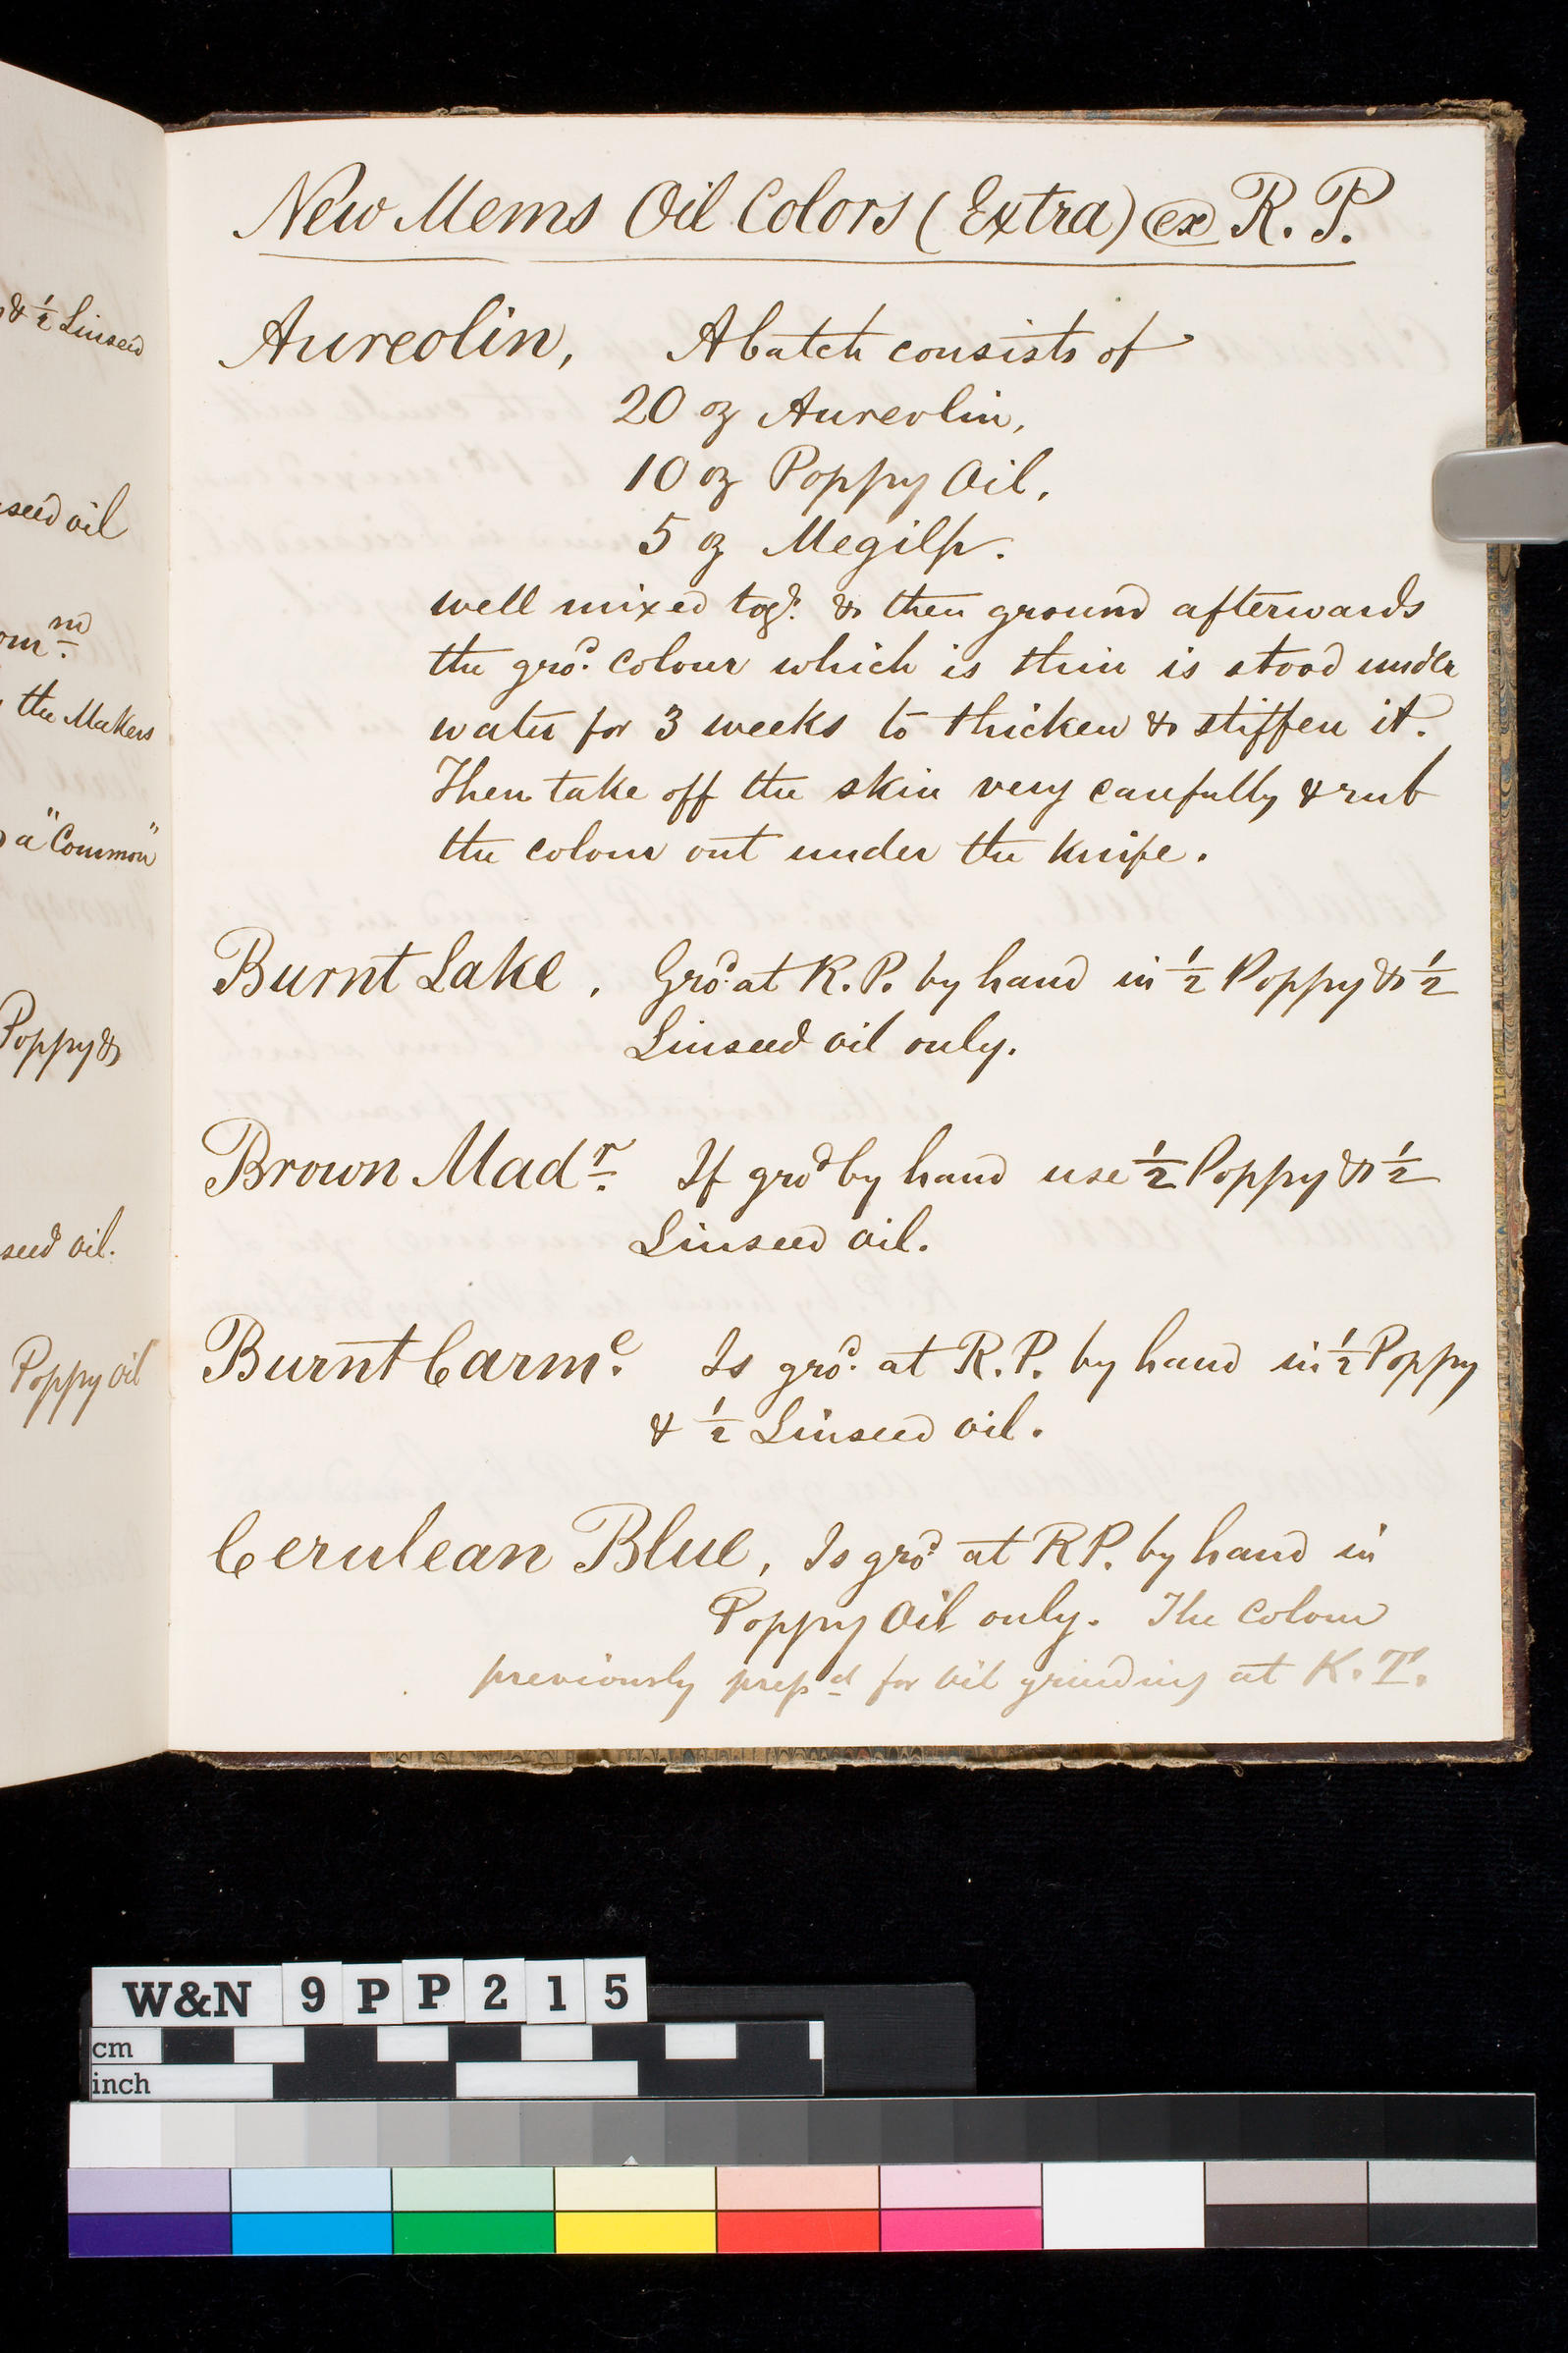 & ½ Linseed
seed oil
the Makers
a "Common"
Poppy &
seed oil.
Poppy oil
New Mems Oil Colors (Extra) ex R. P.
Aureolin, A batch consists of
20 oz Aureolin,
10 oz Poppy Oil,
5 oz Megilp.
well mixed togr. & then ground afterwards
the grod. colour which is thin is stood under
water for 3 weeks to thicken & stiffen it.
Then take off the skin very carefully & rub
the colour out under the knife.
Burnt Lake. Grod. at R. P. by hand in ½ Poppy & ½
Linseed oil only.
Brown Madr. If grod by hand use ½ Poppy & ½
Linseed oil.
Burnt Carme. Is grod. at R. P. by hand in ½ Poppy
& ½ Linseed oil.
Cerulean Blue, Is grod at RP. by hand in
Poppy Oil only. The Colour
previously prepd for oil grinding at K. T.
W&N 9 P P 2 1 5
cm
inch